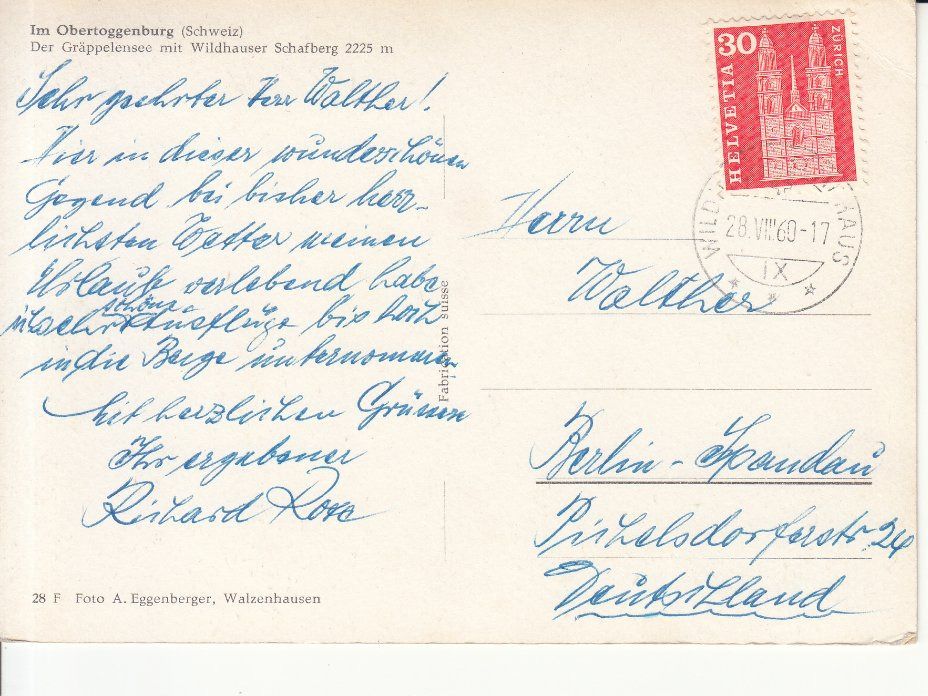 Im Obertoggenburg (Schweiz)
Der Gräppelensee mit Wildhauser Schafberg 2225 m
Sehr geehrter Herr Walther!
Hier in dieser wunderschönen
Gegend bei bisher herr-
lichsten Wetter meinen
Urlaub verlebend habe
schöne
ich sehr Ausflüge bis hoch
in die Berge unternommen
Mit herzlichen Grüssen
Ihr ergebener
Richard Rose
28 F Foto A. Eggenberger, Walzenhausen
Fabrication suisse
HELVETIA
30
ZÜRICH
28.VIII.60-17
IX
Herrn
Walther
Berlin-Spandau
Pichelsdorferstr. 24
Deutschland